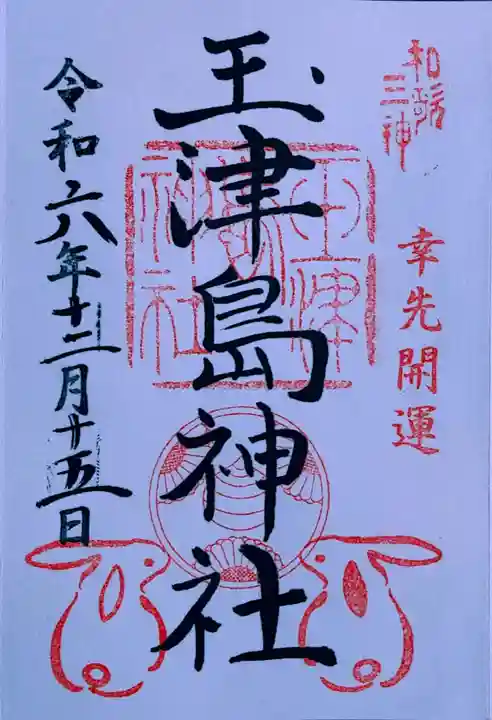 和歌
三神
幸先開運
玉津島神社
玉津
神社
令和六年十二月廿五日